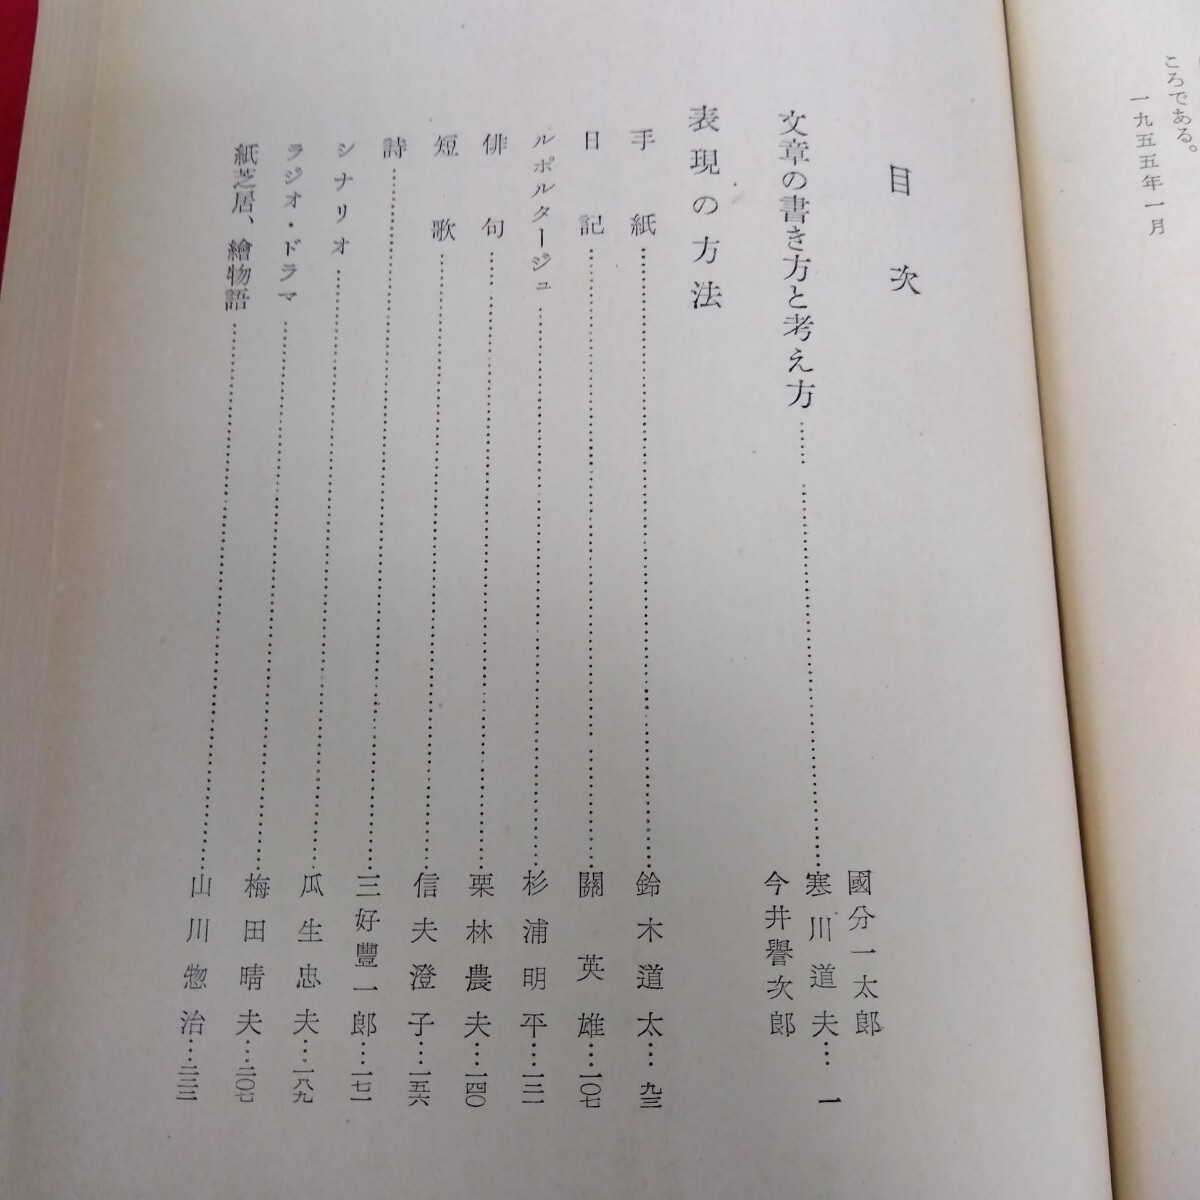 ころである。
一九五五年一月
目次
文章の書き方と考え方…… 國分一太郎
寒川道夫… 一
今井譽次郎
表現の方法
手紙……鈴木道太…九三
日記……關英雄…一〇七
ルポルタージュ……杉浦明平…一二一
俳句……栗林農夫…一四〇
短歌……信夫澄子…一五六
詩……三好豐一郎…一七一
シナリオ……瓜生忠夫…一八九
ラジオ・ドラマ……梅田晴夫…二〇七
紙芝居、繪物語……山川惣治…二二三